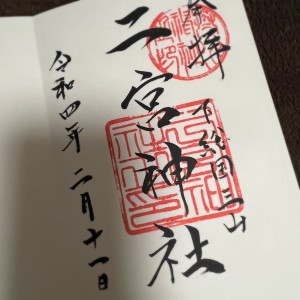 奉拝
下総国三山
二宮神社
令和四年 二月十一日